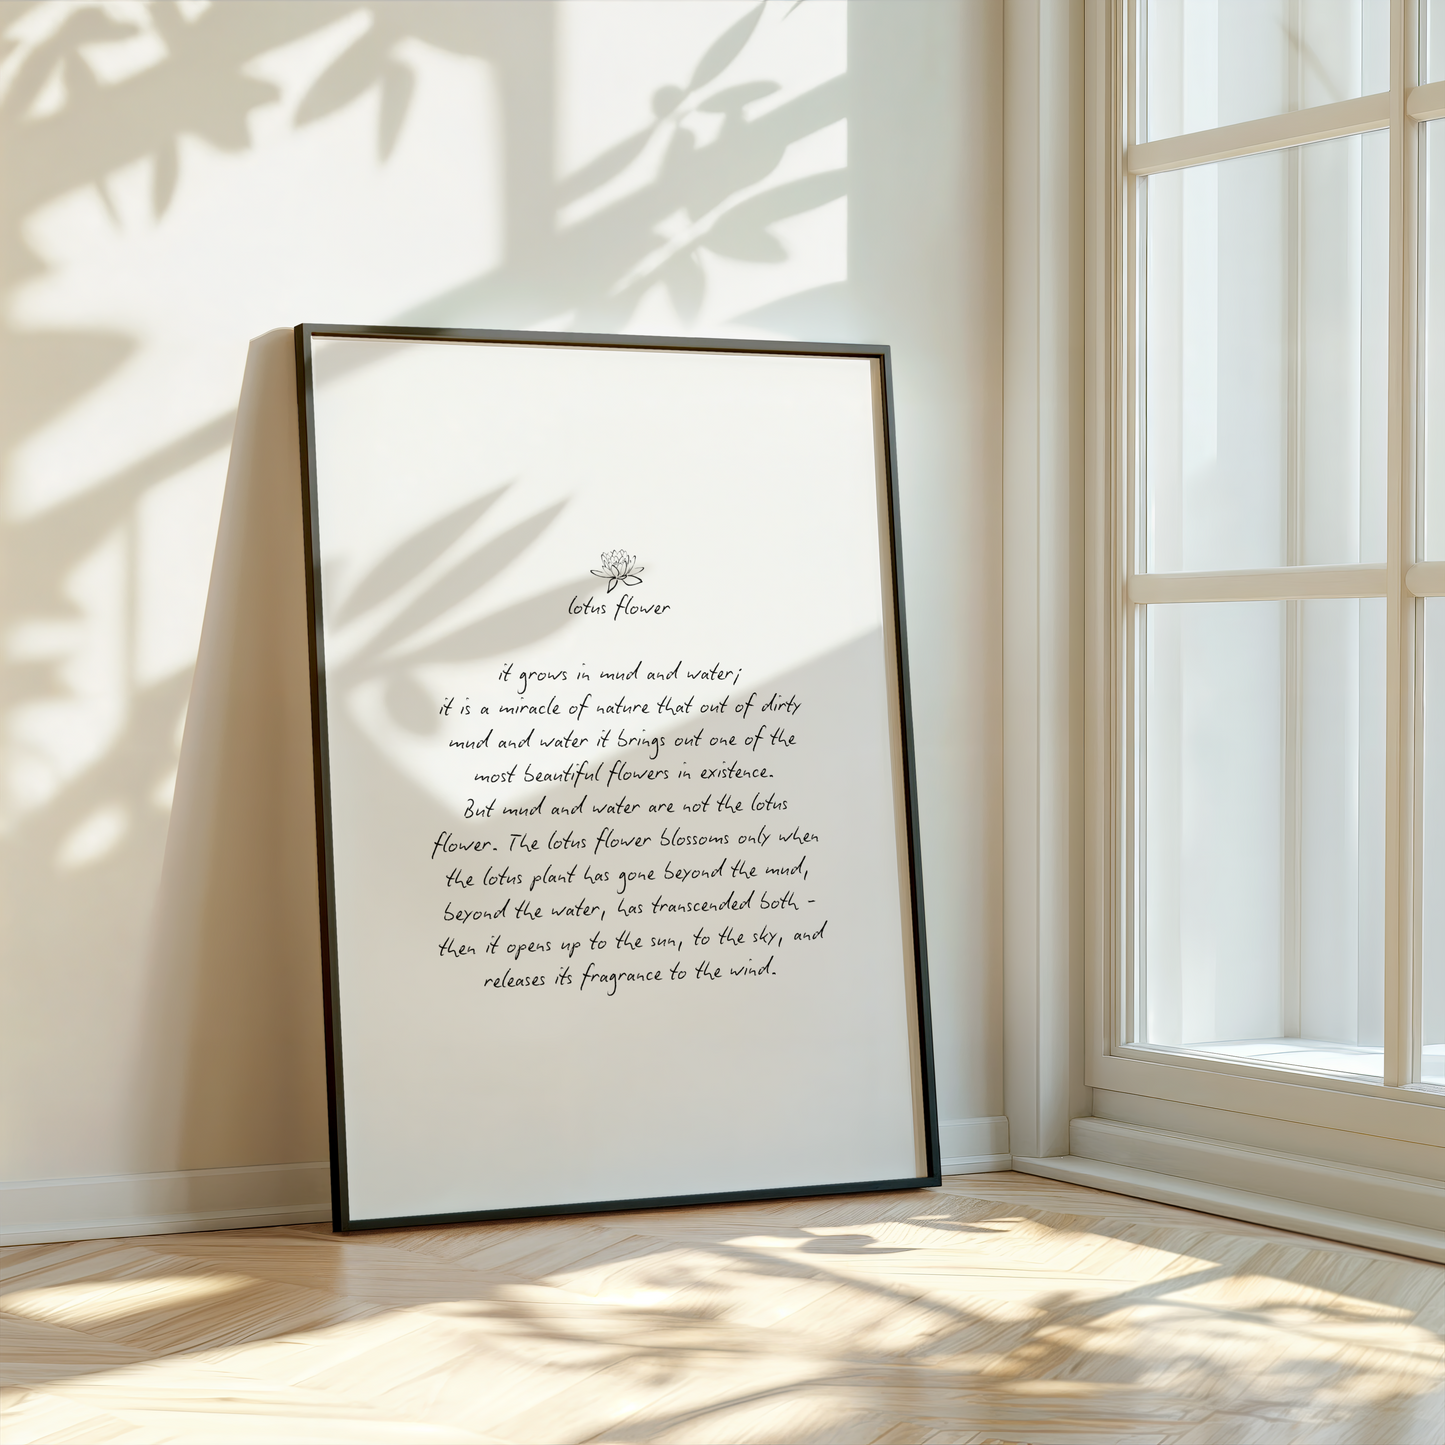 lotus flower
it grows in mud and water;
it is a miracle of nature that out of dirty
mud and water it brings out one of the
most beautiful flowers in existence.
But mud and water are not the lotus
flower. The lotus flower blossoms only when
the lotus plant has gone beyond the mud,
beyond the water, has transcended both -
then it opens up to the sun, to the sky, and
releases its fragrance to the wind.